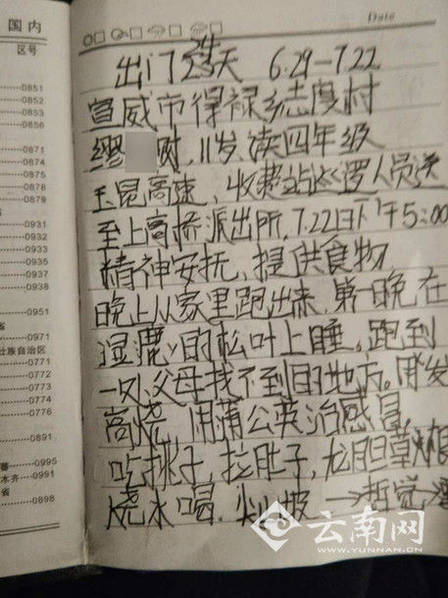 国内
区号
Date
出门24天 6.29-7.22
宣威市得禄乡志度村
缪 财,11岁,读四年级
玉昆高速,收费站巡逻人员送
至上高桥派出所,7.22日下午5:00
精神安抚,提供食物
晚上从家里跑出来,第一晚在
湿漉漉的松叶上睡,跑到
一处父母找不到的地方。
高烧,用蒲公英治感冒,
吃桃子,拉肚子,龙胆草根
烧水喝.
0851
0852
0853
0856
0871
0874
0875
0878
0879
0931
0932
0933
0935
0937
0938
0951
省
0971
壮族自治区
0771
0772
0773
0774
0776
0891
0995
木齐
0991
省
0898
云南网
WWW.YUNNAN.CN